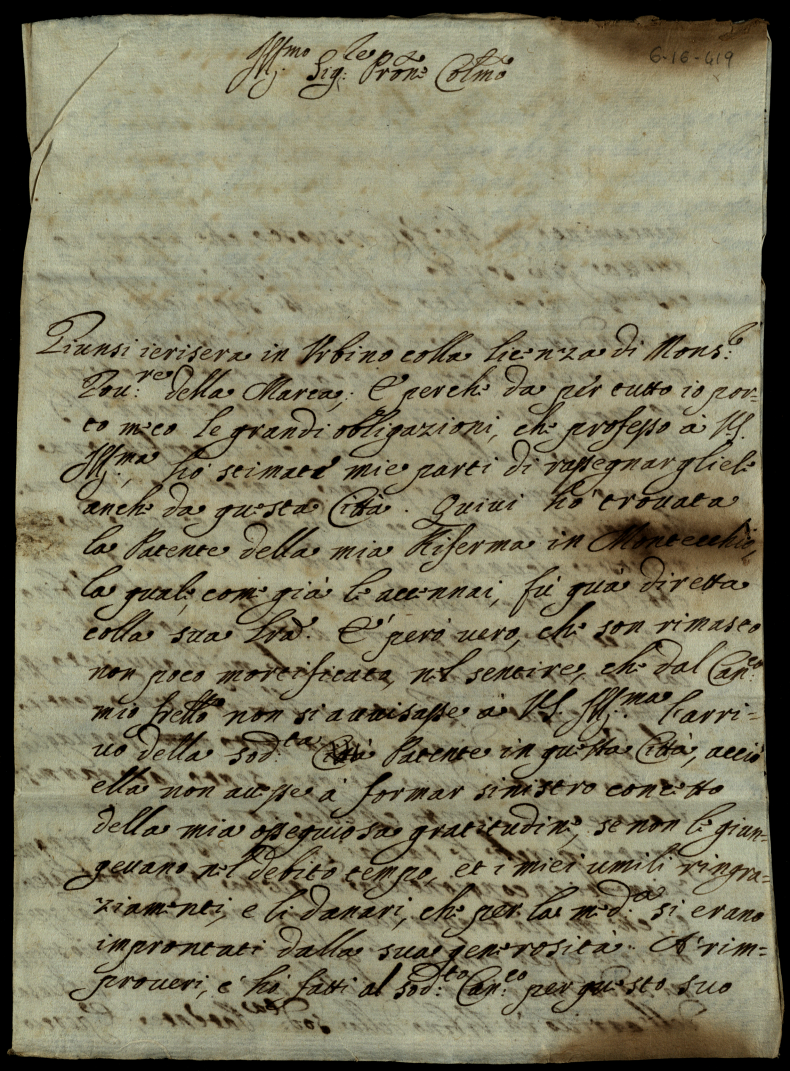 6-16-419
Ill.mo Sig.re Pron.e Col.mo
Giunsi ierisera in Urbino colla licenza di Mons.re
Gov.re della Marca; E perche da per tutto io por=
to meco le grandi obligazioni, che professo à VS.
Ill.ma, hò stimate mie parti di rassegnargliele
anche da questa Città. Quivi hò trovata
la Patente della mia Riferma in Montecchio,
la quale, come già le accennai, fù quà diretta
colla sua Lrã. E' però vero, che son rimasto
non poco mortificato, nel sentire, che dal Can.co
mio frello non si avvisasse à VS. Ill.ma l'arri=
vo della sod.ta Patente in questa Città, acciò
ella non avesse à formar sinistro concetto
della mia ossequiosa gratitudine, se non le giun=
gevano nel debito tempo, et i miei umili ringra=
ziamenti, e li danari, che per la med.a si erano
improntati dalla sua generosità. A' rim=
proveri, c' hò fatti al sod.to Can.co per questo suo